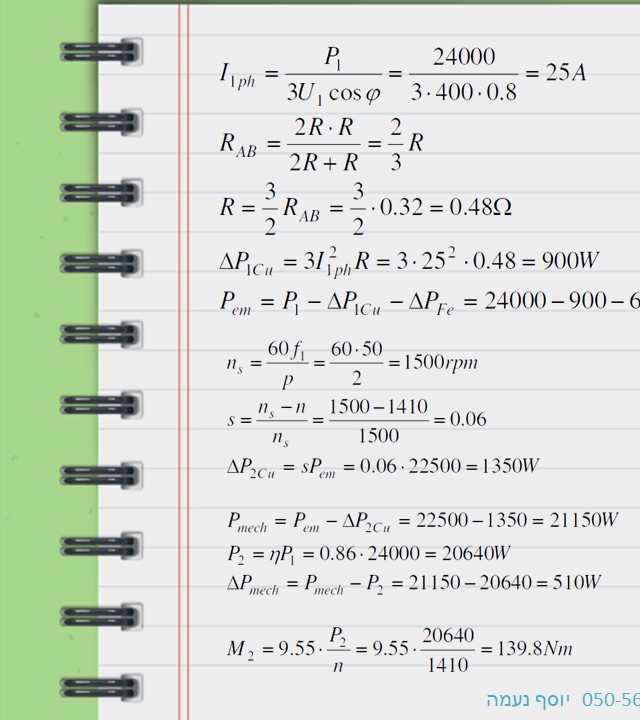 I_{1ph} = \frac{P_1}{3U_1 \cos\varphi} = \frac{24000}{3 \cdot 400 \cdot 0.8} = 25A
R_{AB} = \frac{2R \cdot R}{2R + R} = \frac{2}{3} R
R = \frac{3}{2} R_{AB} = \frac{3}{2} \cdot 0.32 = 0.48Ω
ΔP_{1Cu} = 3I_{1ph}^2 R = 3 \cdot 25^2 \cdot 0.48 = 900W
P_{em} = P_1 − ΔP_{1Cu} − ΔP_{Fe} = 24000 − 900 − 6
n_s = \frac{60f_1}{p} = \frac{60 \cdot 50}{2} = 1500rpm
s = \frac{n_s − n}{n_s} = \frac{1500 − 1410}{1500} = 0.06
ΔP_{2Cu} = sP_{em} = 0.06 \cdot 22500 = 1350W
P_{mech} = P_{em} − ΔP_{2Cu} = 22500 − 1350 = 21150W
P_2 = ηP_1 = 0.86 \cdot 24000 = 20640W
ΔP_{mech} = P_{mech} − P_2 = 21150 − 20640 = 510W
M_2 = 9.55 \cdot \frac{P_2}{n} = 9.55 \cdot \frac{20640}{1410} = 139.8Nm
יוסף נעמה 050-56